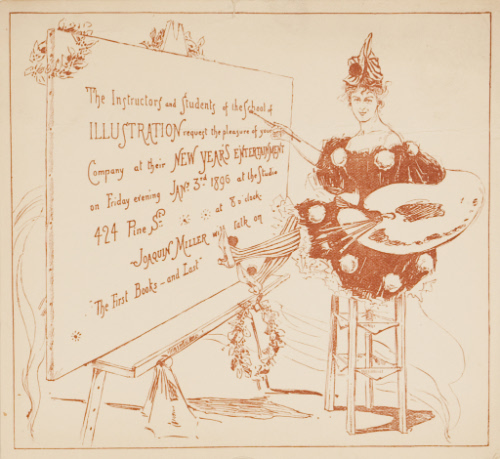 The Instructors and Students of the School of
ILLUSTRATION request the pleasure of your
Company at their NEW YEAR'S ENTERTAINMENT
on Friday evening JANY. 3RD 1896 at the Studio
424 Pine St. at 8 o'clock
JOAQUIN MILLER will talk on
"The First Books - and Last"